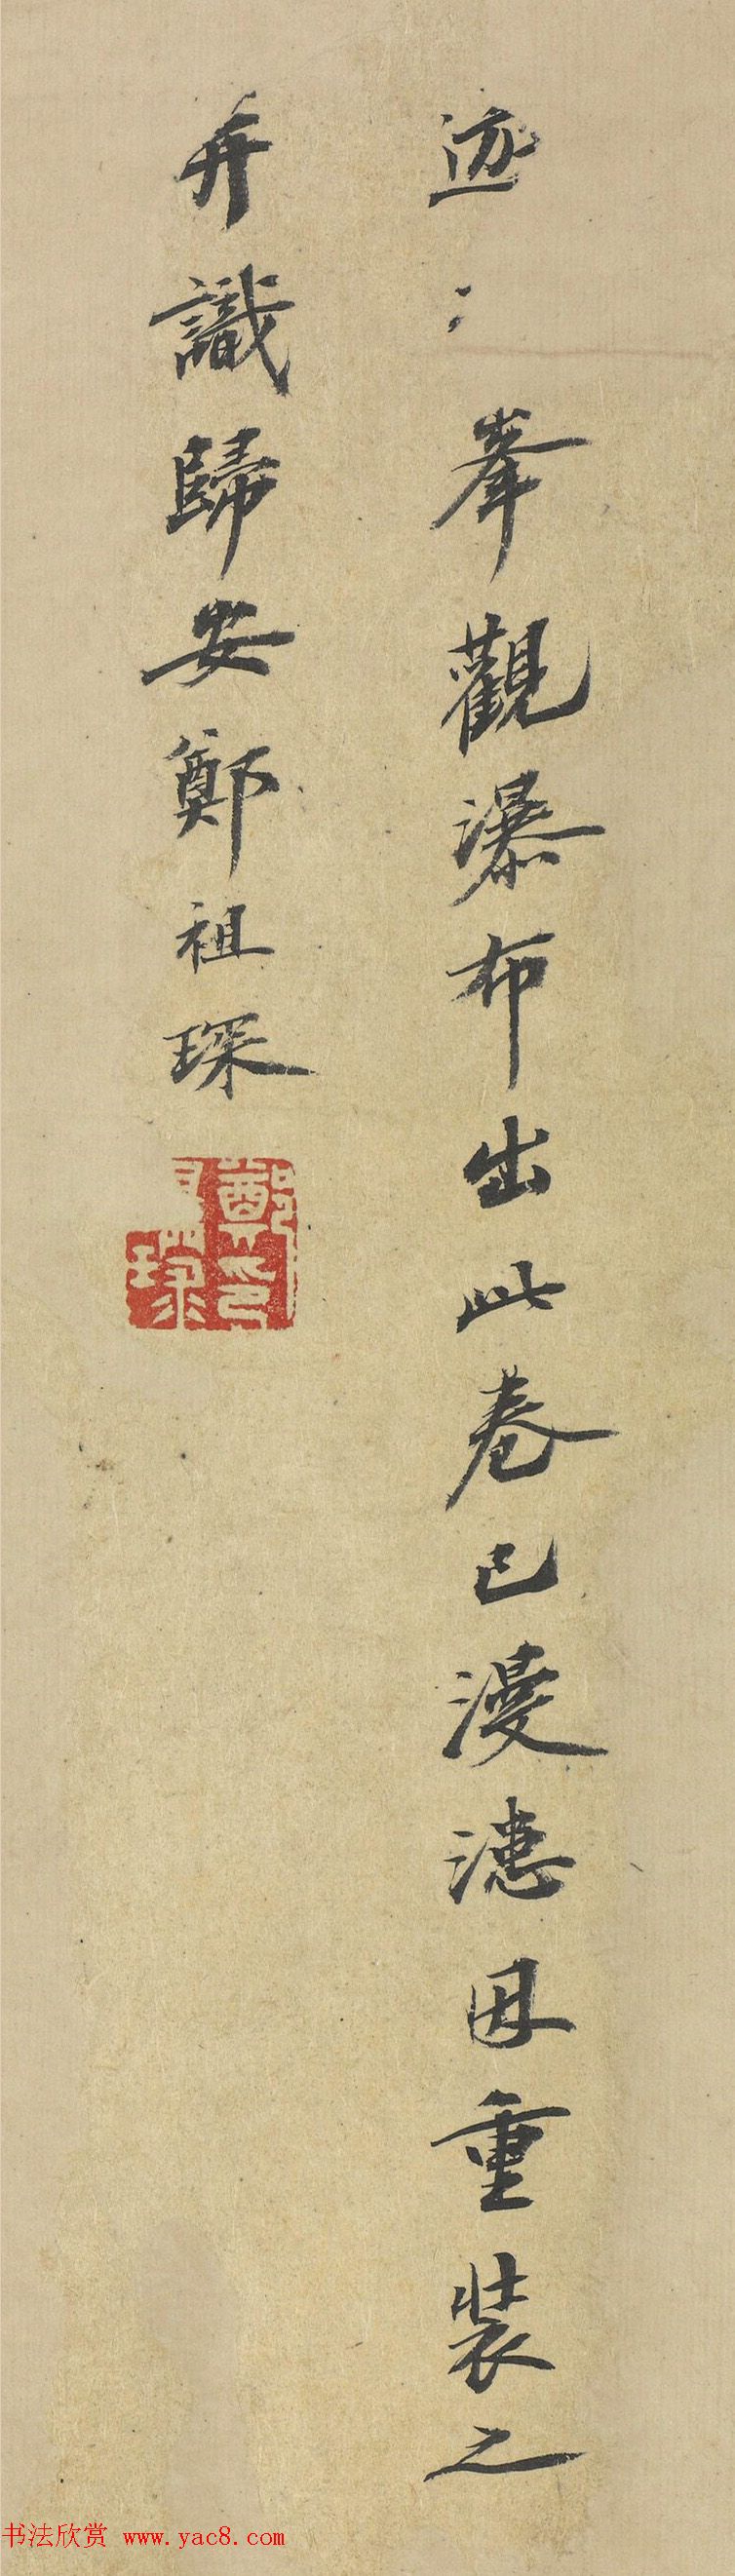 迹〻峯觀瀑布出此卷已漫漶因重裝之
弁識歸安鄭祖琛
書法欣赏 www.yac8.com